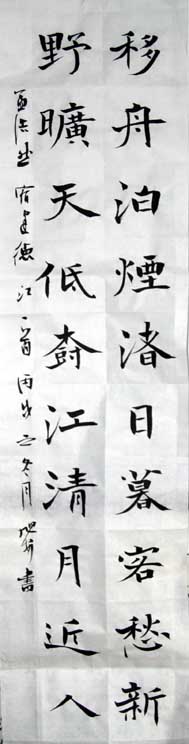 移舟泊煙渚日暮客愁新
野曠天低樹江清月近人
孟浩然宿建德江一首丙戌之冬月書